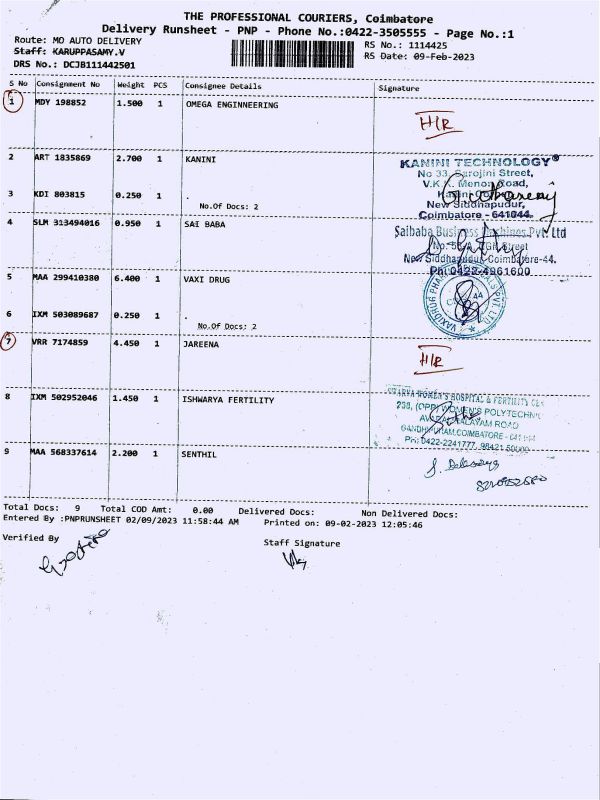 THE PROFESSIONAL COURIERS, Coimbatore
Delivery Runsheet - PNP - Phone No.:0422-3505555 - Page No.:1
Route: MO AUTO DELIVERY
RS No.: 1114425
Staff: KARUPPASAMY.V
RS Date: 09-Feb-2023
DRS No.: DCJB111442501
S No Consignment No Weight PCS Consignee Details Signature
1 MDY 198852 1.500 1 OMEGA ENGINNEERING
H/R
2 ART 1835869 2.700 1 KANINI
KANINI TECHNOLOGY®
No 33, Sarojini Street,
V.K.K. Menon Road,
3 KDI 803815 0.250 1 .
No.Of Docs: 2
New Siddhapudur,
Coimbatore - 641044.
4 SLM 313494016 0.950 1 SAI BABA
Saibaba Business Machines Pvt Ltd
Street
New Siddhapudur Coimbatore-44.
Ph:0422-4961600
5 MAA 299410380 6.400 1 VAXI DRUG
6 IXM 503089687 0.250 1 .
No.Of Docs: 2
7 VRR 7174859 4.450 1 JAREENA
H/R
8 IXM 502952046 1.450 1 ISHWARYA FERTILITY
WOMEN'S HOSPITAL & FERTILITY
(OPP) WOMEN'S POLYTECHNIC
ROAD
COIMBATORE
Ph: 0422-2241777,
9 MAA 568337614 2.200 1 SENTHIL
Total Docs: 9 Total COD Amt: 0.00 Delivered Docs: Non Delivered Docs:
Entered By :PNPRUNSHEET 02/09/2023 11:58:44 AM Printed on: 09-02-2023 12:05:46
Verified By
Staff Signature